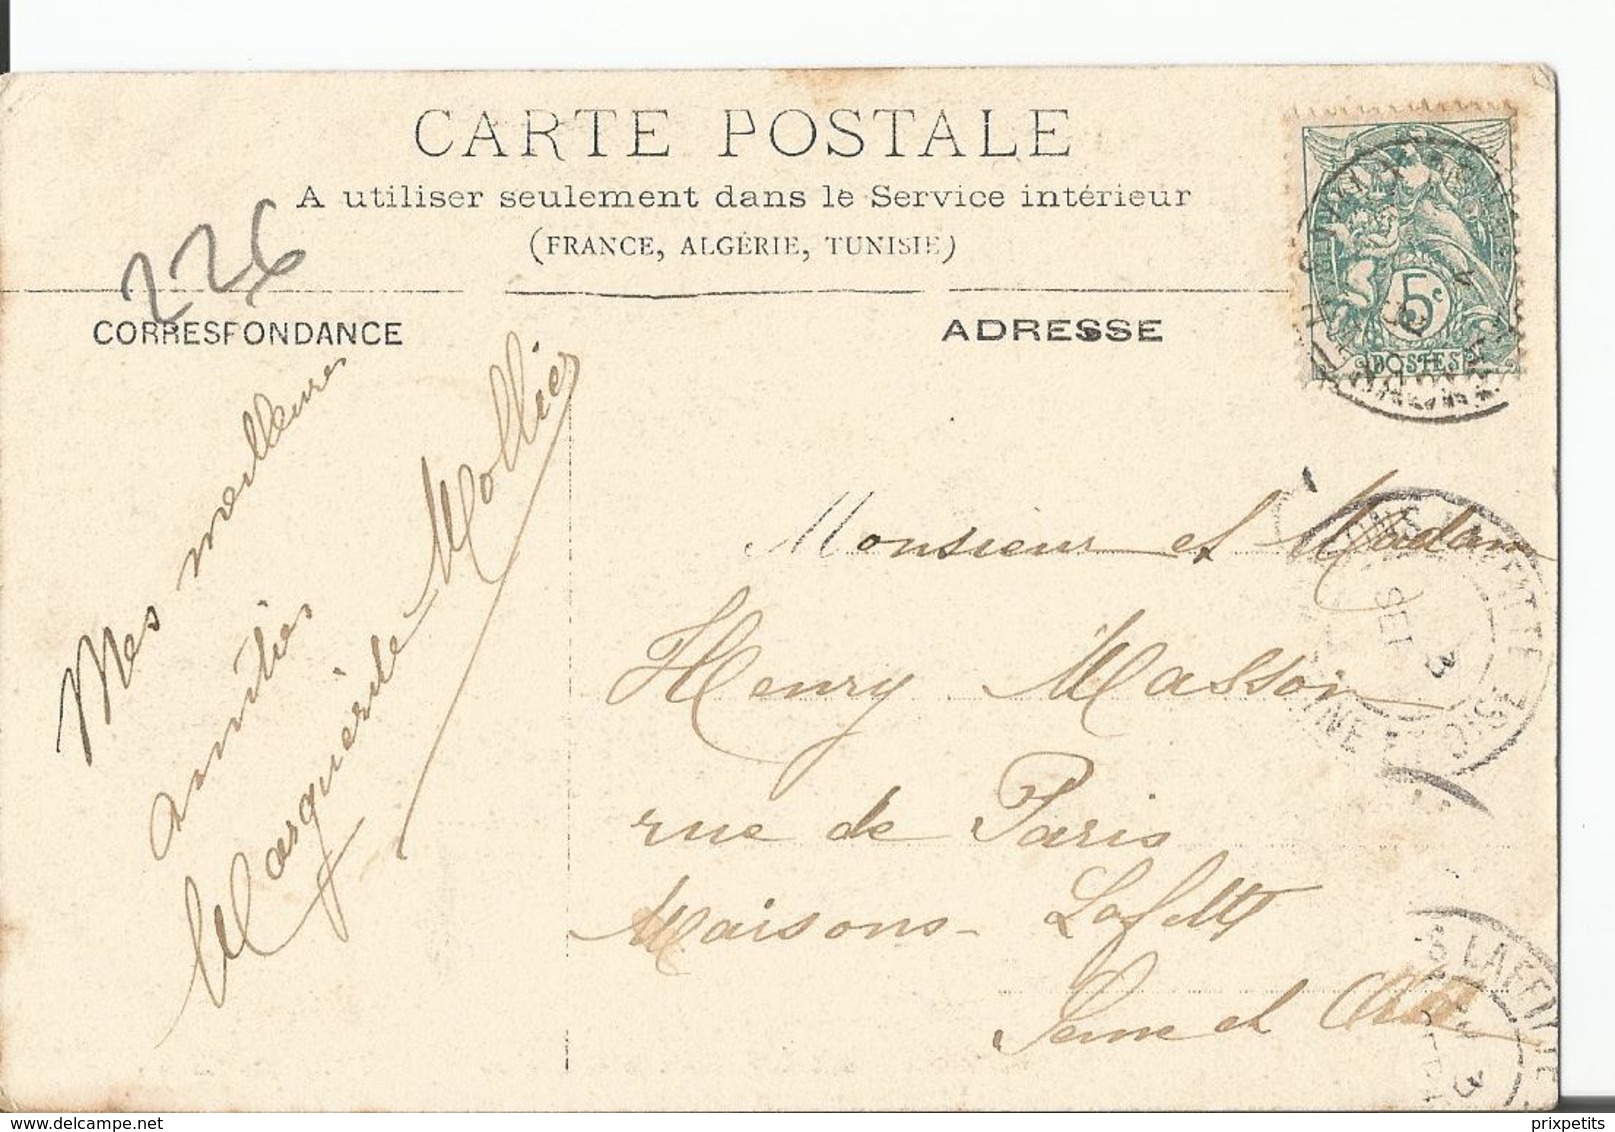 CARTE POSTALE
A utiliser seulement dans le Service intérieur
(FRANCE, ALGÉRIE, TUNISIE)
226
CORRESPONDANCE
ADRESSE
5c
POSTES
Mes meilleures
amitiés
Marguerite Mollier
Monsieur et Madame
Henry Masson
rue de Paris
Maisons-Lafitte
Seine et Oise
SEPT
3
S LAFFITTE
3
prixpetits